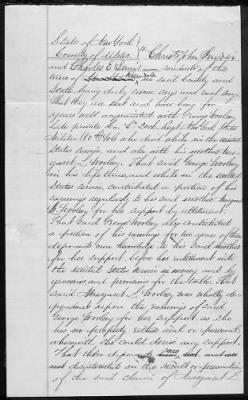 State of New York
County of Ulster } SS Christopher
and Charles E. Lewis residents of the
town of said County and
State being duly sworn says and each say
that they are and have been for
years well acquainted with George Wooley
late private Co. Regt. New York State
Militia now dead while in the United
States service and also with his mother
garet L. Wooley. That said George Wooley
in his life time and while in the United
States service, contributed a portion of his
earnings regularly to his said mother Margaret
L. Wooley for her support by allotment.
That said George Wooley also contributed
a portion of his earnings for two years of these
deponents own knowledge to his said mother
for her support before his entertment into
the United States service in money and by
groceries and provisions for the table. That
said Margaret L. Wooley was wholly de-
pendent upon the earnings of said
George Wooley for her support as she
has no property either real or personal
whereof she could derive any support.
That these deponents have not and are
not disinterested in the result or prosecution
of the said claim of Margaret L